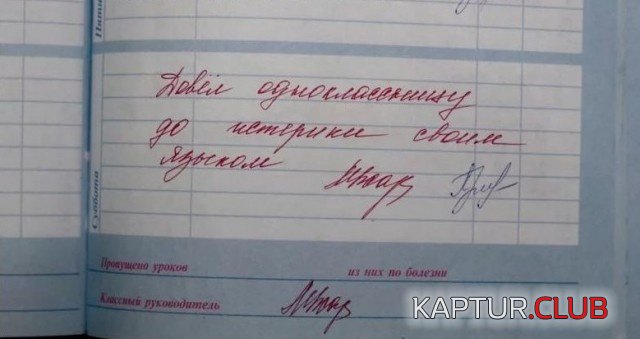 Довёл одноклассницу
до истерики своим
языком
Суббота
Пропущено уроков
из них по болезни
Классный руководитель
KAPTUR.CLUB